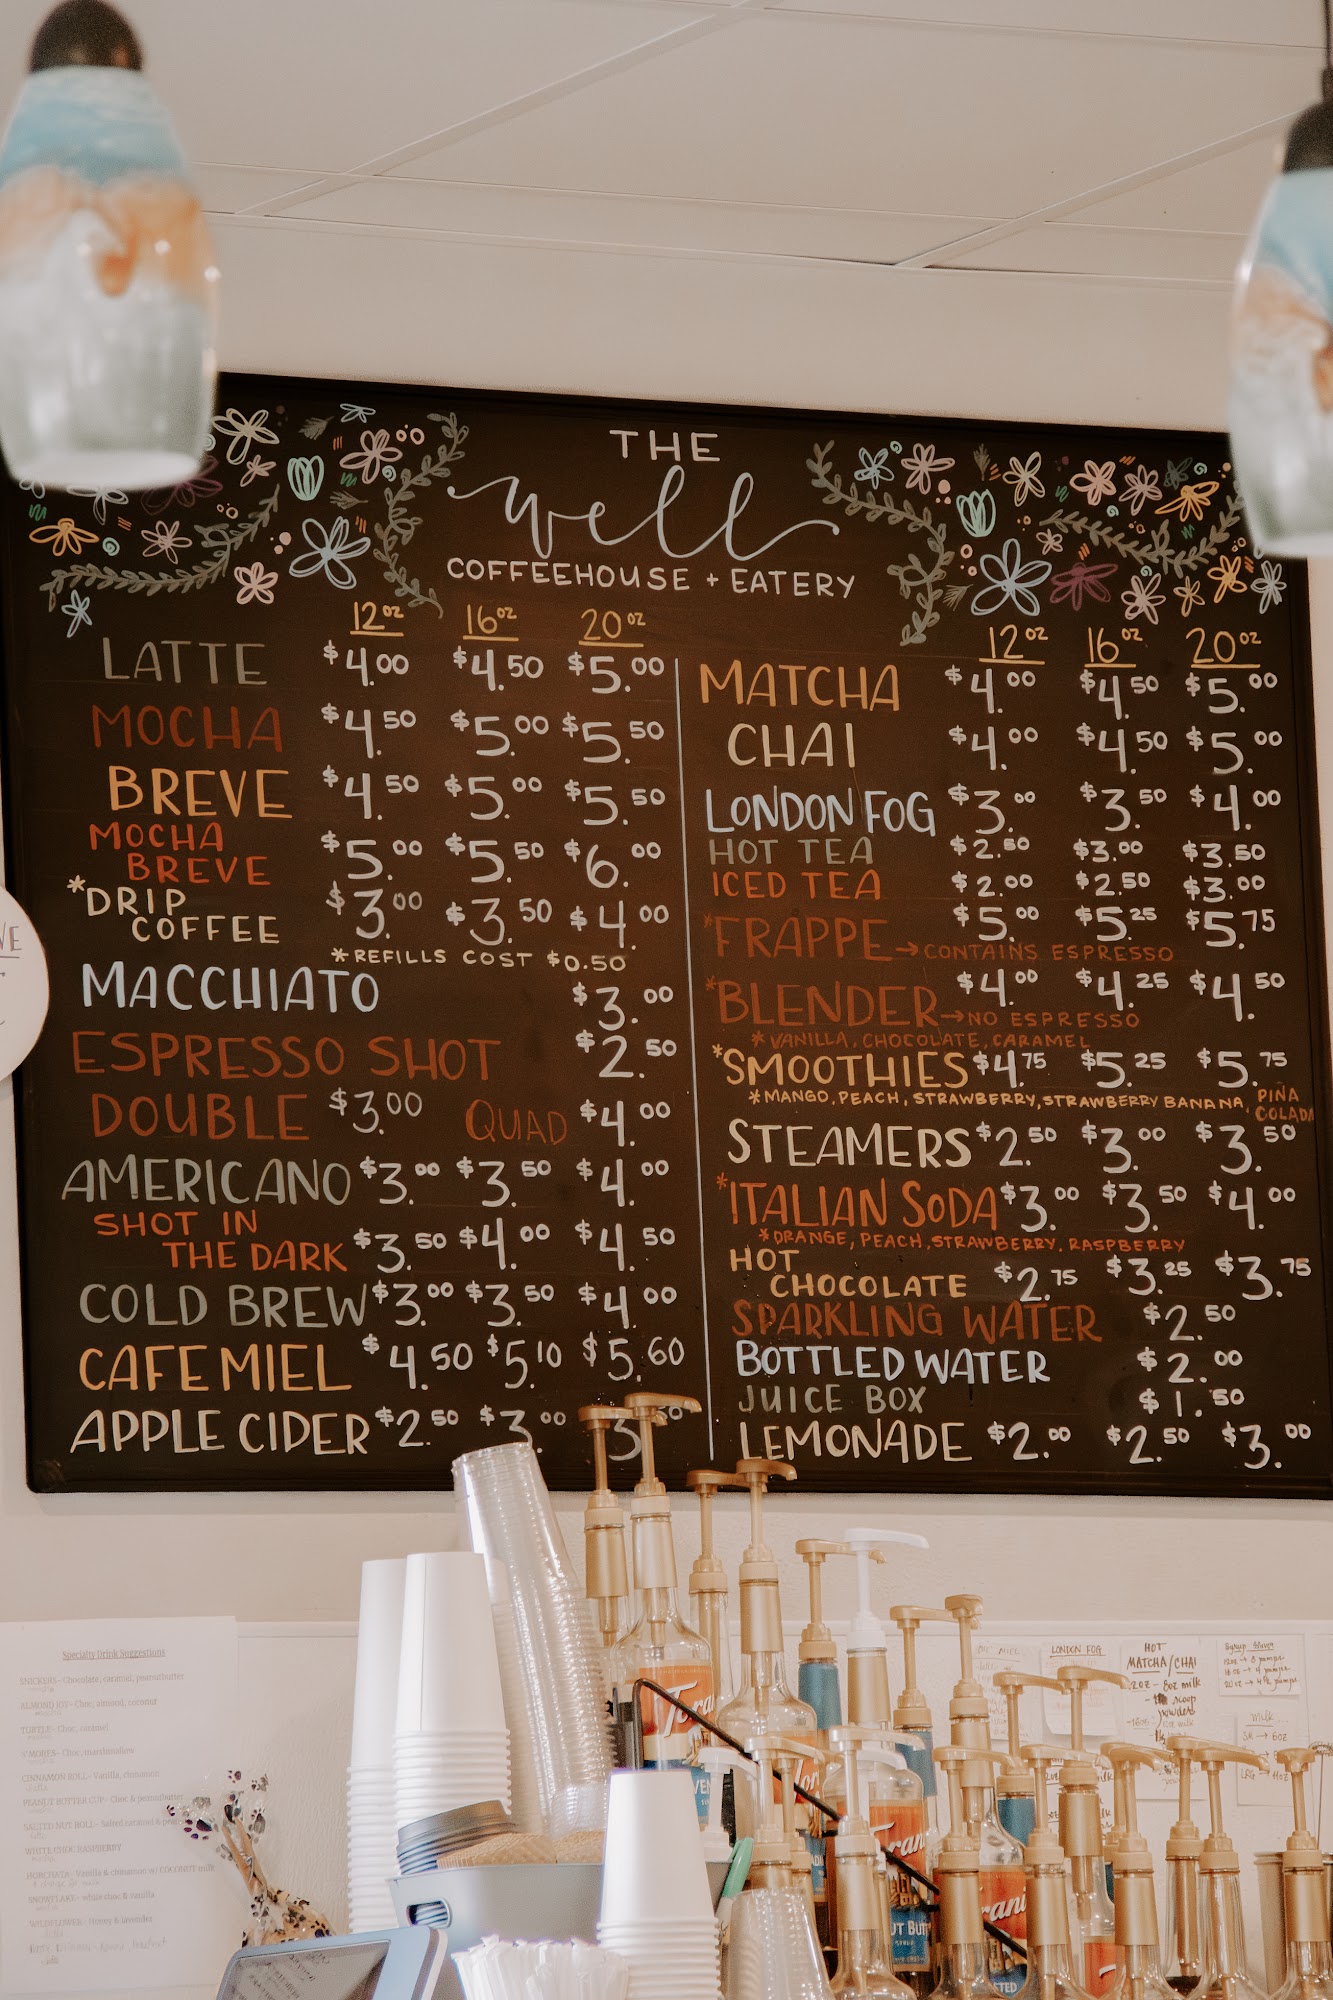 THE
Well
COFFEEHOUSE + EATERY
12oz 16oz 20oz
LATTE $4.00 $4.50 $5.00
MOCHA $4.50 $5.00 $5.50
BREVE $4.50 $5.00 $5.50
MOCHA
BREVE $5.00 $5.50 $6.00
*DRIP
COFFEE $3.00 $3.50 $4.00
*REFILLS COST $0.50
MACCHIATO $3.00
ESPRESSO SHOT $2.50
DOUBLE $3.00 QUAD $4.00
AMERICANO $3.00 $3.50 $4.00
SHOT IN
THE DARK $3.50 $4.00 $4.50
COLD BREW $3.00 $3.50 $4.00
CAFE MIEL $4.50 $5.10 $5.60
APPLE CIDER $2.50 $3.00 3
12oz 16oz 20oz
MATCHA $4.00 $4.50 $5.00
CHAI $4.00 $4.50 $5.00
LONDON FOG $3.00 $3.50 $4.00
HOT TEA $2.50 $3.00 $3.50
ICED TEA $2.00 $2.50 $3.00
*FRAPPE $5.00 $5.25 $5.75
→CONTAINS ESPRESSO
*BLENDER $4.00 $4.25 $4.50
→NO ESPRESSO
*VANILLA, CHOCOLATE, CARAMEL
*SMOOTHIES $4.75 $5.25 $5.75
*MANGO, PEACH, STRAWBERRY, STRAWBERRY BANANA, PIÑA
COLADA
STEAMERS $2.50 $3.00 $3.50
*ITALIAN SODA $3.00 $3.50 $4.00
*ORANGE, PEACH, STRAWBERRY, RASPBERRY
HOT
CHOCOLATE $2.75 $3.25 $3.75
SPARKLING WATER $2.50
BOTTLED WATER $2.00
JUICE BOX $1.50
LEMONADE $2.00 $2.50 $3.00
Specialty Drink Suggestions
SNICKERS - Chocolate, caramel, peanutbutter
ALMOND JOY - Choc, almond, coconut
TURTLE - Choc, caramel
S'MORES - Choc, marshmallow
CINNAMON ROLL - Vanilla, cinnamon
PEANUT BUTTER CUP - Choc & peanutbutter
SALTED NUT ROLL - Salted caramel &
WHITE CHOC RASPBERRY
HORCHATA - Vanilla & cinnamon w/ COCONUT milk
SNOWFLAKE - white choc & vanilla
WILDFLOWER - Honey & lavender
LONDON FOG
HOT
MATCHA/CHAI
12oz - 8oz milk
scoop
powder
Torani